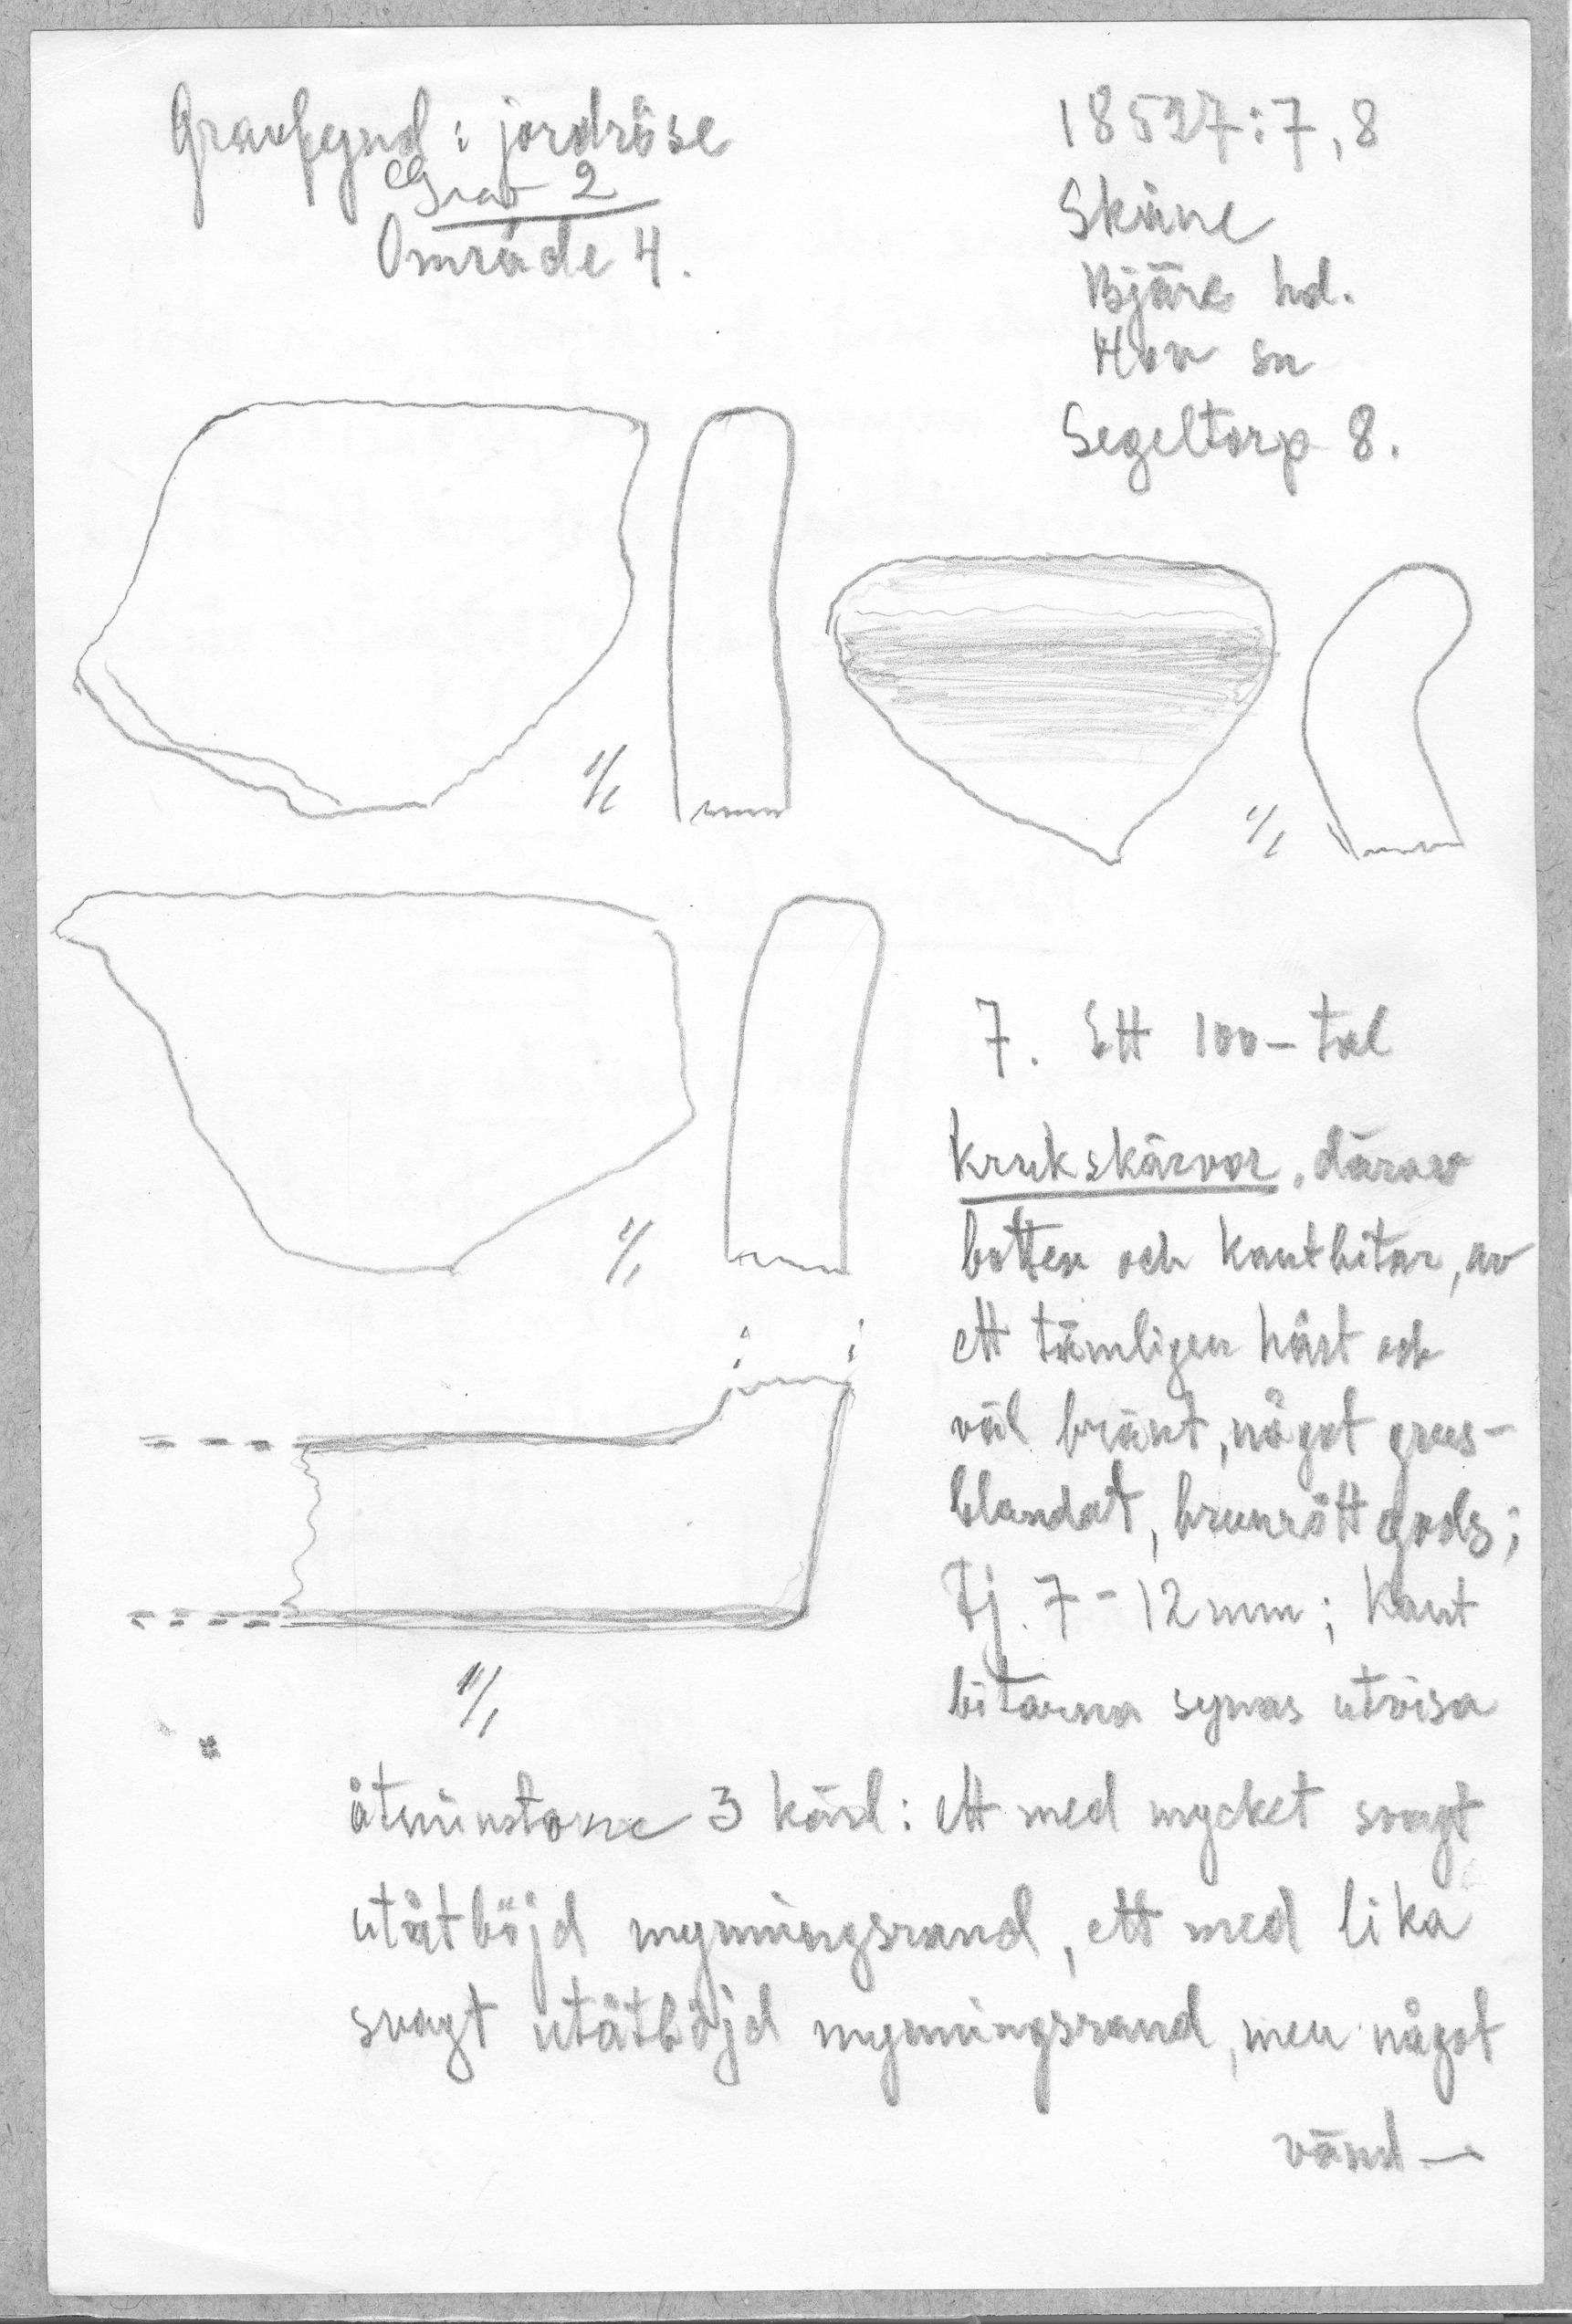 Gravfynd i jordröse
Grav 2
Område 4.
18527:7,8
Skåne
Bjäre hd.
Hov sn
Segeltorp 8.
1/1
1/1
1/1
7. Ett 100-tal
krukskärvor, därav
botten och kantbitar, av
ett tämligen hårt och
väl bränt, något grus-
blandat, brunrött gods;
Tj. 7-12 mm; kant
bitarna synas utvisa
1/1
åtminstone 3 kärl: ett med mycket svagt
utåtböjd mynningsrand, ett med lika
svagt utåtböjd mynningsrand, men något
vänd